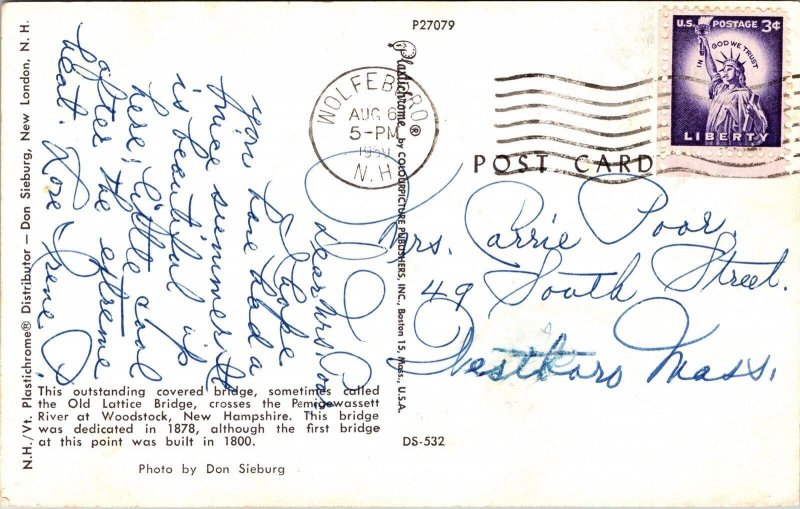 P27079
U.S. POSTAGE 3¢
IN GOD WE TRUST
LIBERTY
WOLFEBORO
AUG 6
5-PM
N.H.
POST CARD
Mrs. Carrie Poor.
49 South Street.
Westboro Mass.
Dear Mrs. Poor
I hope
you have had a
nice summer. It
is beautiful up
here; little cool
after the extreme
heat. Rose Irene P.
This outstanding covered bridge, sometimes called
the Old Lattice Bridge, crosses the Pemigewassett
River at Woodstock, New Hampshire. This bridge
was dedicated in 1878, although the first bridge
at this point was built in 1800.
Photo by Don Sieburg
DS-532
N.H./Vt. Plastichrome® Distributor — Don Sieburg, New London, N. H.
Plastichrome® by COLOURPICTURE PUBLISHERS, INC., Boston 15, Mass., U.S.A.